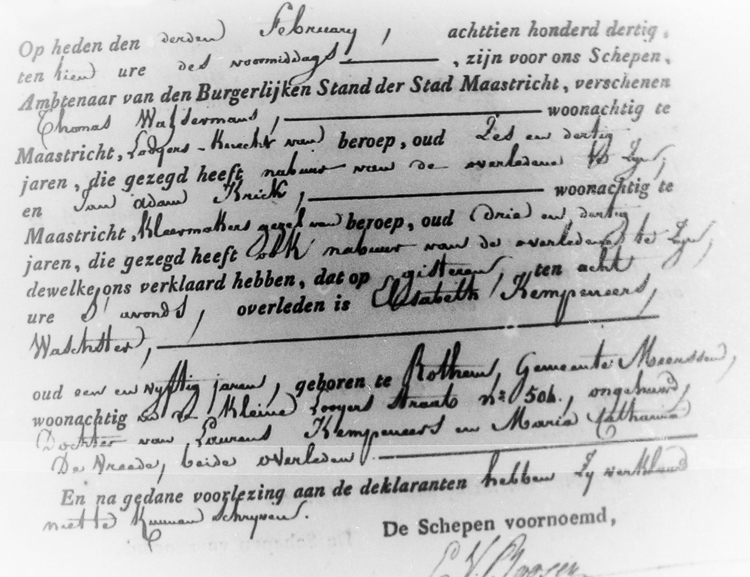 Op heden den derden February, achttien honderd dertig,
ten tien ure des voormiddags, zijn voor ons Schepen,
Ambtenaar van den Burgerlijken Stand der Stad Maastricht, verschenen
Thomas woonachtig te
Maastricht, Loogers-knecht van beroep, oud Zes en dertig
jaren, die gezegd heeft nabuur van de overledene te Zyn,
en Jan adam Krick, woonachtig te
Maastricht, kleermakers gezel van beroep, oud drie en dertig
jaren, die gezegd heeft ook nabuur van de overledene te Zyn,
dewelke ons verklaard hebben, dat op gisteren, ten acht
ure s'avonds, overleden is Elisabeth Kempeneers,
oud een en vyftig jaren, geboren te Rothem, Gemeente Meerssen,
woonachtig in de kleine Looyers Straat nº 504, ongehuwd,
Dochter van Laurens Kempeneers en Maria Catharina
De Vreede, beide overleden
En na gedane voorlezing aan de deklaranten hebben Zy verklaard
niet te kunnen Schryven.
De Schepen voornoemd,